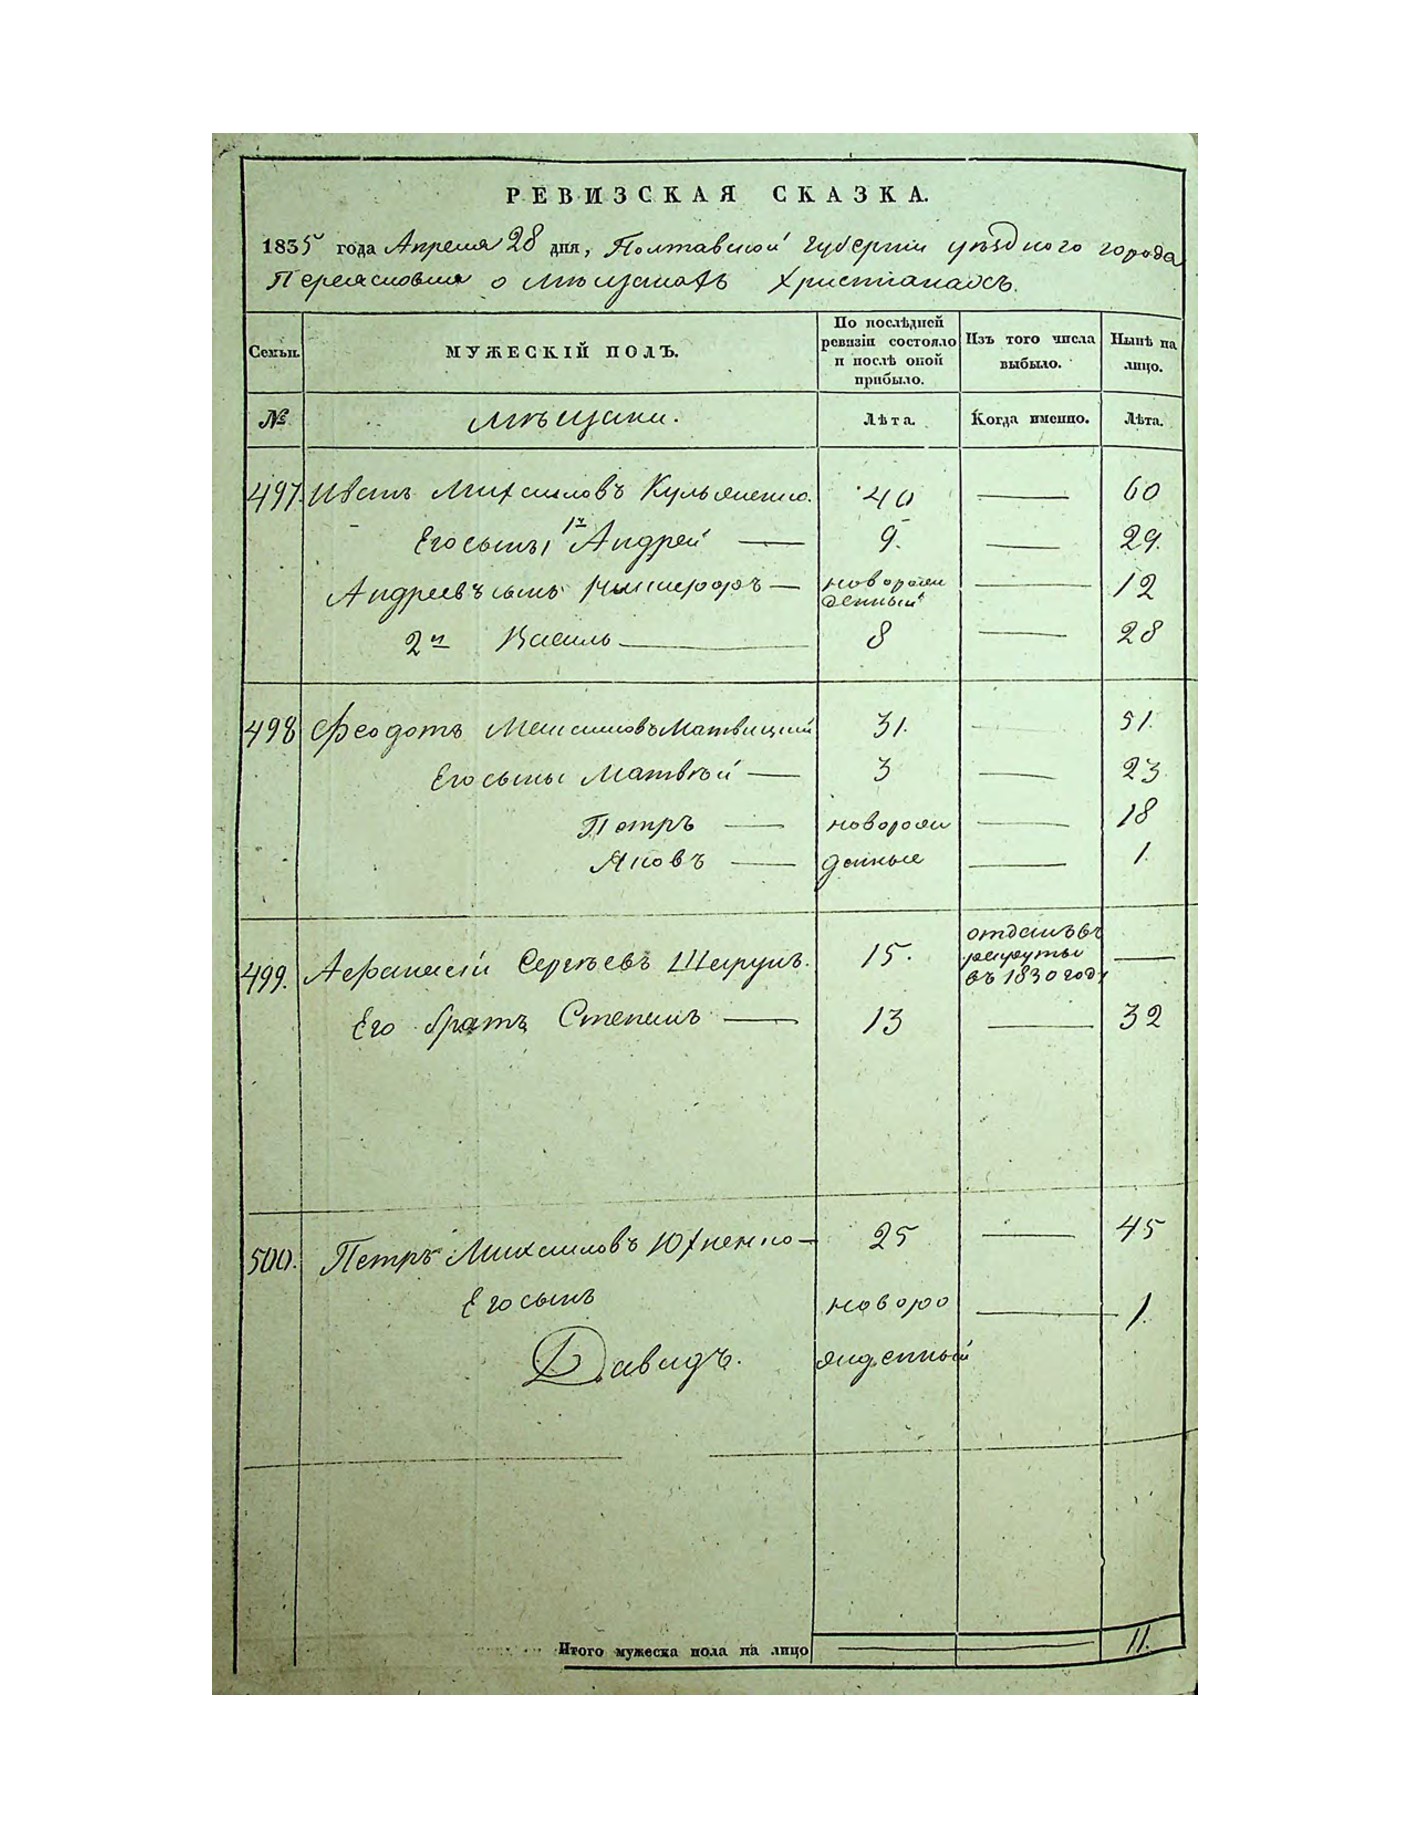 РЕВИЗСКАЯ СКАЗКА.
1835 года Апреля 28 дня, Полтавской губернии уѣзднаго города
Переяславля о мѣщанахъ Христианахъ.
Семьи.
МУЖЕСКІЙ ПОЛЪ.
По послѣдней ревизіи состояло и послѣ оной прибыло.
Изъ того числа выбыло.
Нынѣ на лицо.
№
мѣщани.
Лѣта.
Когда именно.
Лѣта.
497. Иванъ Михайловъ 40 — 60
Его сынъ 1й Андрей — 9. — 29.
Андреевъ сынъ — новорожденный — 12
2й Василь — 8 — 28
498 Феодотъ 31. — 51.
Его сыны Матвѣй — 3 — 23
Петръ — новорож — 18
Яковъ — денные — 1.
499. Афанасій Сергѣевъ 15. отданъ въ рекруты въ 1830 году —
Его братъ Степанъ — 13 — 32
500. Петръ Михайловъ Юхненко — 25 — 45
Его сынъ новоро — 1.
Давидъ. жденный
Итого мужеска пола на лицо — 11.